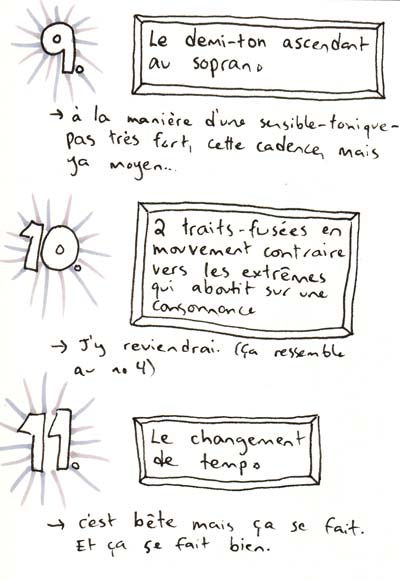 9.
Le demi-ton ascendant
au soprano
→ à la manière d'une sensible-tonique-
pas très fort, cette cadence, mais
ya moyen...
10.
2 traits-fusées en
mouvement contraire
vers les extrêmes
qui aboutit sur une
consonnance
→ J'y reviendrai. (Ça ressemble
au no 4)
11.
Le changement
de tempo
→ c'est bête mais ça se fait.
Et ça se fait bien.